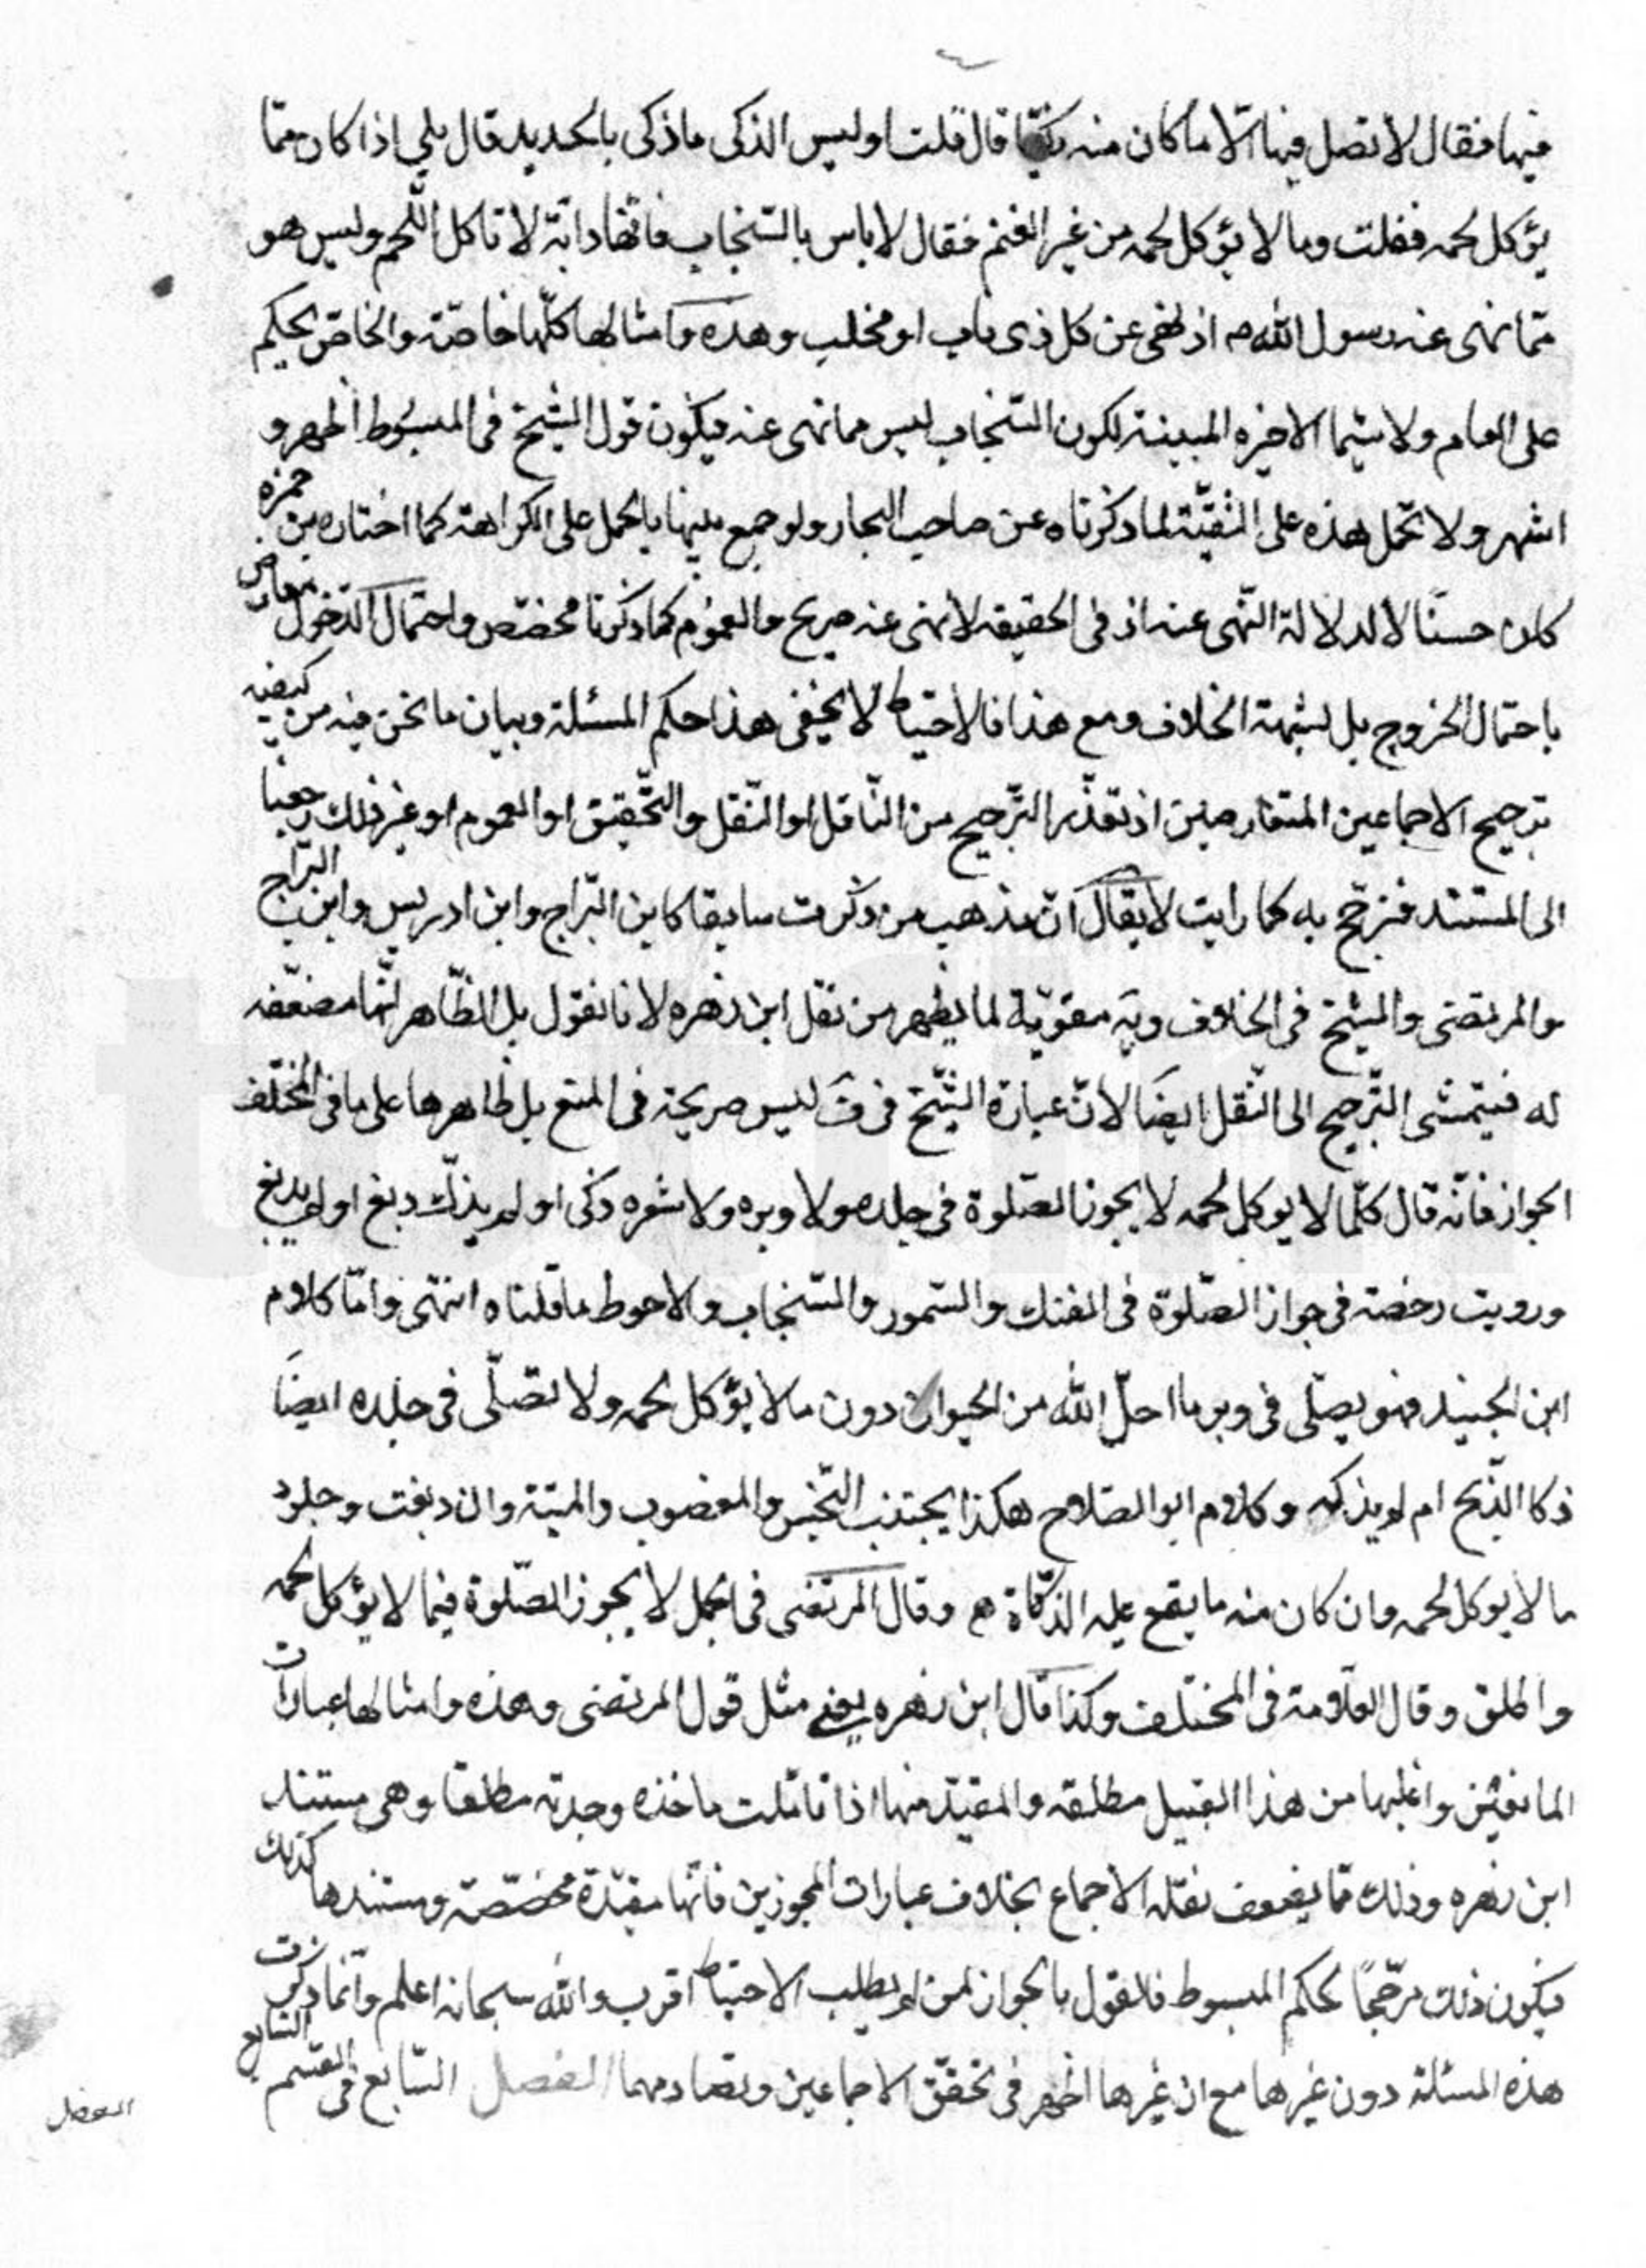 فيها فقال لا تصل فيها الا ما كان منه ذكيا قال قلت او ليس الذكى ما ذكى بالحديد قال بلى اذا كان مما
يؤكل لحمه فقلت وما لا يؤكل لحمه من غير الغنم فقال لا باس بالسّنجاب فانّها دابّة لا تاكل اللّحم وليس هو
ممّا نهى عنه رسول اللّه ص اذ نهى عن كل ذى ناب او مخلب وهذه وامثالها كلّها خاصّة والخاصّ يحكم
على العام ولا سيّما الاخيره المبينة لكون السّنجاب ليس مما نهى عنه فيكون قول الشّيخ فى المبسوط اظهر و
اشهر ولا تحمل هذه على التّقيّة لما ذكرناه عن صاحب البحار ولو جمع بينها بالحمل على الكراهة كما اختاره بن حمزه
كان حسنًا لا لدلالة النّهى عنه اذ فى الحقيقه لا نهى عنه صريح والعموم كما ذكرنا مخصّص واحتمال الدّخول معارض
باحتمال الخروج بل لشبهة الخلاف ومع هذا فالاحتياط لا يخفى هذا حكم المسئلة وبيان ما نحن فيه من كيفيه
ترجيح الاجماعين المتعارضين اذ تعذّر التّرجيح من النّاقل او النّقل والتّحقيق او العموم او غير ذلك رجعنا
الى المستند فنرجّح به كما رايت لا يقال انّ مذهب من ذكرت سابقا كابن البّراج وابن ادريس وابن البرّاج
والمرتضى والشّيخ فى الخلاف ويه مقوّية لما يظهر من نقل ابن زهره لانا نقول بل الظّاهر انّها مضعّفه
له فيتمشى التّرجيح الى النّقل ايضًا لانّ عبارة الشّيخ فى ف ليس صريحة فى المنع بل ظاهرها على ما فى المختلف
الجواز فانّه قال كلّما لا يوكل لحمه لا يجوز الصّلوة فى جلده ولا وبره ولا شعره ذكى او لم يذكّ دبغ او لم يدبغ
ورويت رخصة فى جواز الصّلوة فى الفنك والسّمور والسّنجاب والاحوط ما قلناه انتهى وامّا كلام
ابن الجنيد فهو يصلّى فى وبر ما احلّ اللّه من الحيوان دون ما لا يؤكل لحمه ولا تصلّى فى جلده ايضًا
ذكا الذّبح ام لم يذكه وكلام ابو الصّلاح هكذا يجتنب النّجس والمغصوب والميتة وان دبغت وجلود
ما لا يوكل لحمه وان كان منه ما يقع عليه الذّكاة وقال المرتضى فى الجمل لا يجوز الصّلوة فيما لا يؤكل لحمه
واطلق وقال العلّامة فى المختلف وكذا قال ابن زهره يعنى مثل قول المرتضى وهذه وامثالها عبارات
المانعين واغلبها من هذا القبيل مطلقه والمقيّد منها اذا تاملت ماخذه وجدته مطلقا وهى مستند
ابن زهره وذلك ممّا يضعف نقله الاجماع بخلاف عبارات المجوزين فانّها مقيّدة مخصّصة ومستندها كذلك
فيكون ذلك مرجّحًا لحكم المبسوط فالقول بالجواز لمن لم يطلب الاحتياط اقرب واللّه سبحانه اعلم وانّما ذكرت
هذه المسئلة دون غيرها مع ان غيرها اظهر فى تحقّق الاجماعين وتصادمهما الفصل السّابع فى القسم السّابع
الفصل